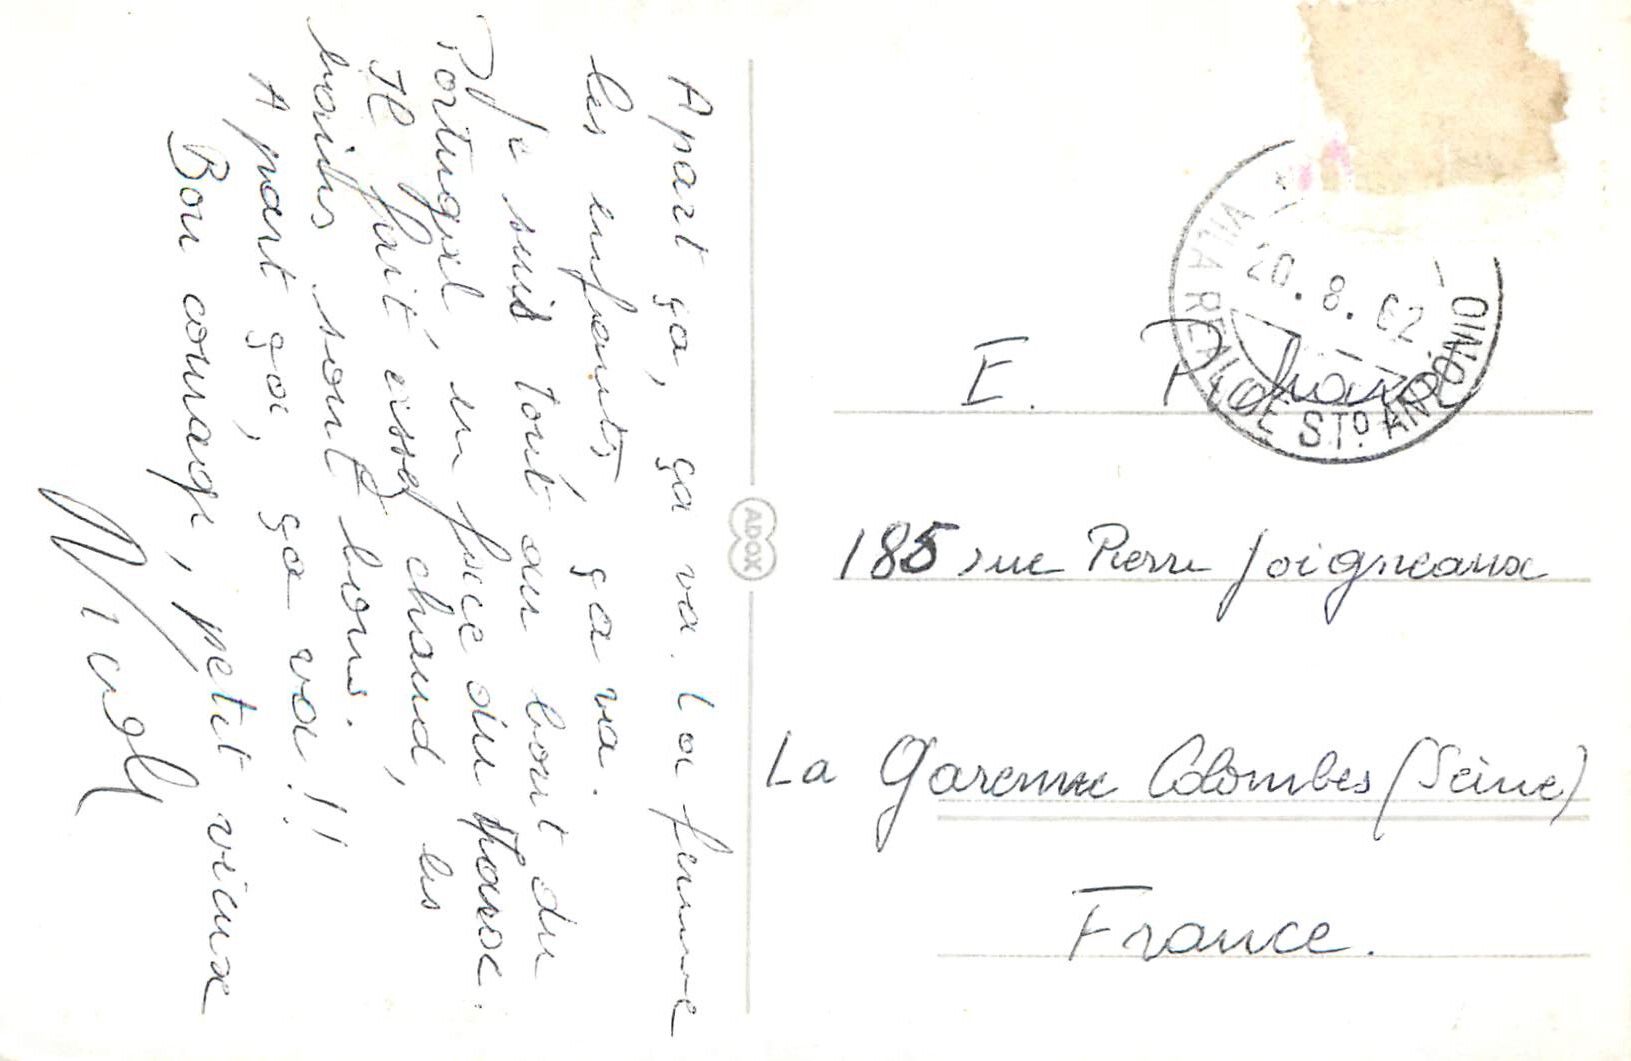 A part ça, ça va. La femme
les enfants, ça va.
Je suis tout au bout du
Portugal, en face du Maroc.
Il fait assez chaud, les
boites sont bons.
A part ça, ça va !!
Bon courage, petit vieux
ADOX
20.8.62
VILA REAL DE STO. ANTÓNIO
E.
185, rue Pierre Joigneaux
La Garenne Colombes (Seine)
France.